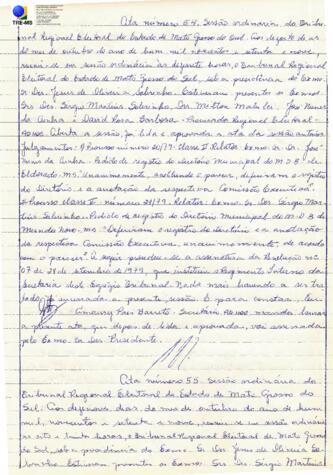 TRE-MS
Ata número 54. Sessão ordinária do Tribu-
nal Regional Eleitoral do Estado de Mato Grosso do Sul. Aos dezoito di-
as do mês de outubro do ano de hum mil novecentos e setenta e nove,
reuniu-se em sessão ordinária às dezoito horas, o Tribunal Regional
Eleitoral do Estado de Mato Grosso do Sul, sob a presidência do Exmo.
Sr. Des. Jesus de Oliveira Sobrinho. Estiveram presentes os Exmos.
Srs. Drs. Sérgio Martins Sobrinho, Milton Malulei, José Nunes
da Cunha e David Rosa Barbosa. Procurador Regional Eleitoral -
Aberta a sessão, foi lida e aprovada a ata da sessão anterior.
Julgamentos: Processo número 20/79 - Classe II. Relator: Exmo. Sr. Dr. José
Nunes da Cunha. Pedido de registro do diretório Municipal do M.D.B. de
Eldorado - MS. "Unanimemente, acolhendo o parecer, deferiram o registro
do diretório e a anotação da respectiva Comissão Executiva".
Processo classe II - número 21/79. Relator: Exmo. Sr. Dr. Sérgio Mar-
tins Sobrinho. Pedido de registro do Diretório Municipal do M.D.B. de
Mundo Novo - MS. "Deferiram o registro do diretório e a anotação
da respectiva Comissão Executiva, unanimemente, de acordo
com o parecer". A seguir procedeu-se a assinatura da Resolução nº
07 de 28 de setembro de 1979, que instituiu o Regimento Interno da
Secretaria deste Egrégio Tribunal. Nada mais havendo a ser tra-
tado, é encerrada a presente sessão. E para constar, eu,
Barreto, Secretário, mandei lavrar
a presente ata, que depois de lida e aprovada, vai assinada
pelo Exmo. Sr. Des. Presidente.
Ata número 55. Sessão ordinária do
Tribunal Regional Eleitoral do Estado de Mato Grosso do
Sul. Aos dezenove dias do mês de outubro do ano de hum
mil, novecentos e setenta e nove, reuniu-se em sessão ordinária
às oito e trinta horas, o Tribunal Regional Eleitoral de Mato Grosso
do Sul, sob a presidência do Exmo. Sr. Des. Jesus de Oliveira So-
brinho. Estiveram presentes os Exmos. Srs. Drs. Sérgio Martins